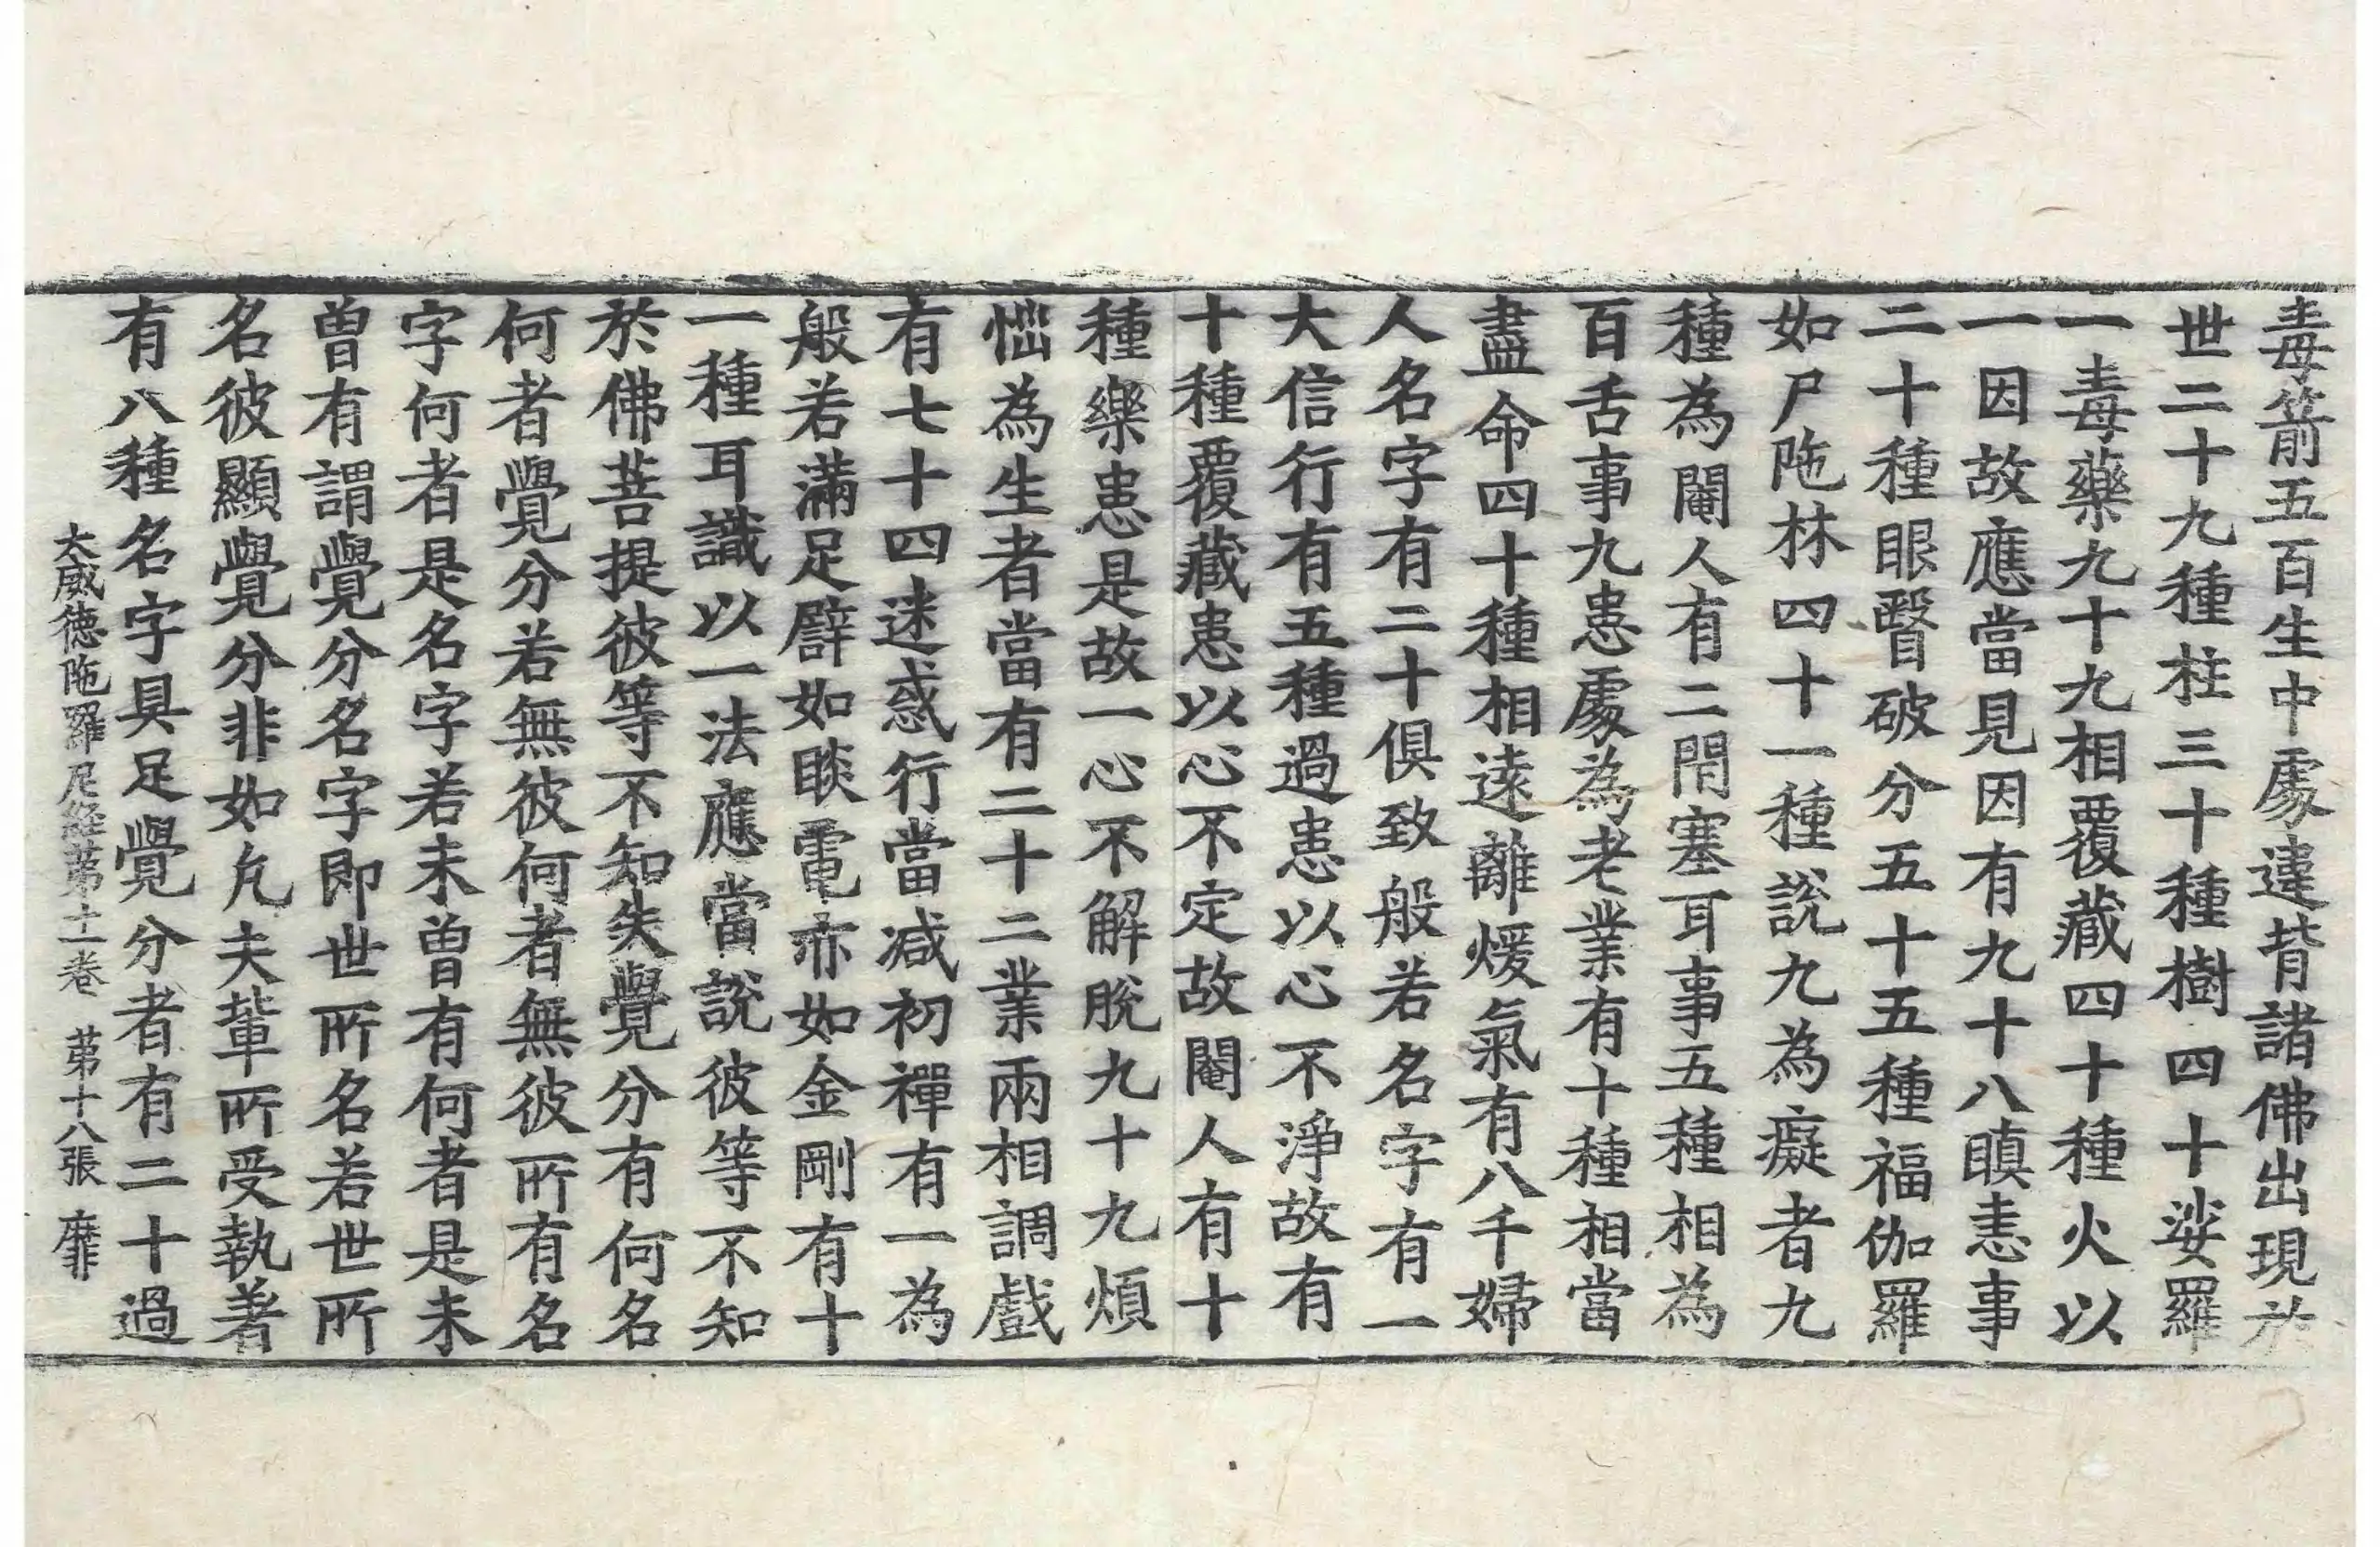 毒箭五百生中處違背諸佛出現於
世二十九種柱三十種樹四十娑羅
一毒藥九十九相覆藏四十種火以
一因故應當見因有九十八瞋恚事
二十種眼瞖破分五十五種福伽羅
如尸陁林四十一種說九為癡者九
種為閹人有二閇塞耳事五種相為
百舌事九患處為老業有十種相當
盡命四十種相遠離煖氣有八千婦
人名字有二十俱致般若名字有一
大信行有五種過患以心不淨故有
十種覆藏患以心不定故閹人有十
種樂患是故一心不解脫九十九煩
惱為生者當有二十二業兩相調戲
有七十四迷惑行當減初禪有一為
般若滿足譬如睒電亦如金剛有十
一種耳識以一法應當說彼等不知
於佛菩提彼等不知失覺分有何名
何者覺分若無彼何者無彼所有名
字何者是名字若未曾有何者是未
曾有謂覺分名字即世所名若世所
名彼顯覺分非如凡夫輩所受執著
有八種名字具足覺分者有二十過
大威德陁羅尼經第十二卷 第十八張 靡